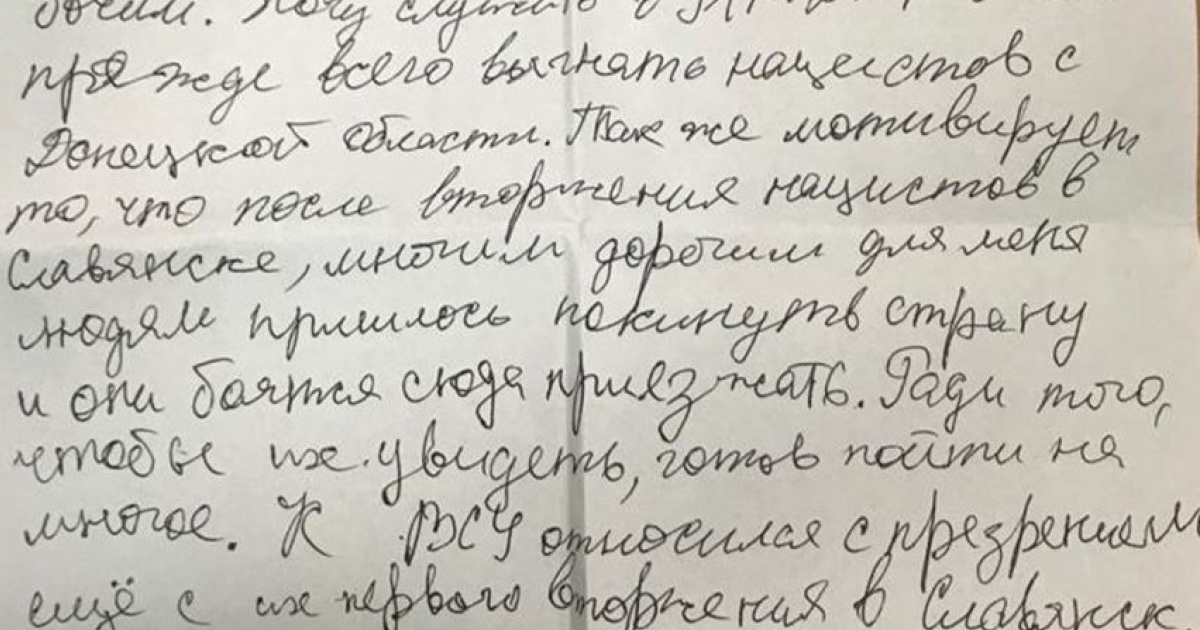 боем. Хочу служить в
прежде всего выгнать нацистов с
Донецкой области. Так же мотивирует
то, что после вторжения нацистов в
Славянске, многим дорогим для меня
людям пришлось покинуть страну
и они боятся сюда приезжать. Ради того,
чтобы их увидеть, готов пойти на
многое. К ВСУ относился с презрением
ещё с их первого вторжения в Славянск.